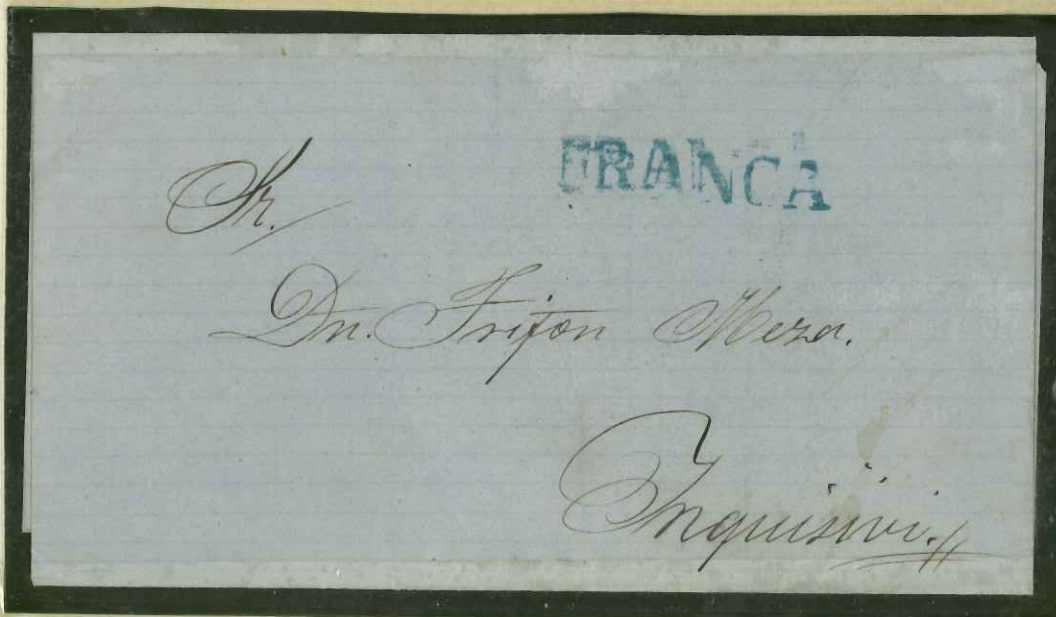 FRANCA
Sr.
Dn. Trifon Meza.
Inquisivi.